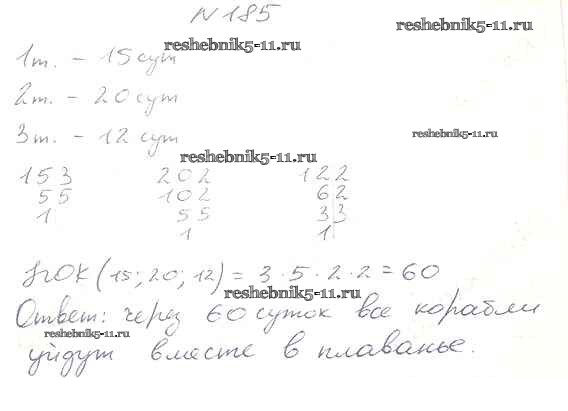 N185
reshebnik5-11.ru
reshebnik5-11.ru
1т. - 15 сут
2т. - 20 сут
3т. - 12 сут
reshebnik5-11.ru
reshebnik5-11.ru
15 3 20 2 12 2
5 5 10 2 6 2
1 5 5 3 3
1 1
НОК (15; 20; 12) = 3 · 5 · 2 · 2 = 60
reshebnik5-11.ru
Ответ: через 60 суток все корабли
reshebnik5-11.ru
уйдут вместе в плаванье.